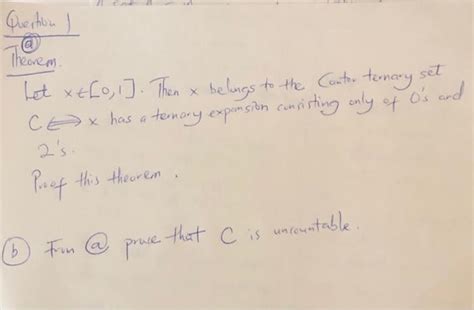 Question 1
(a)
Theorem.
Let x ∈ [0,1]. Then x belongs to the Cantor ternary set
C ⟺ x has a ternary expansion consisting only of 0's and
2's.
Proof this theorem.
(b) From (a) prove that C is uncountable.